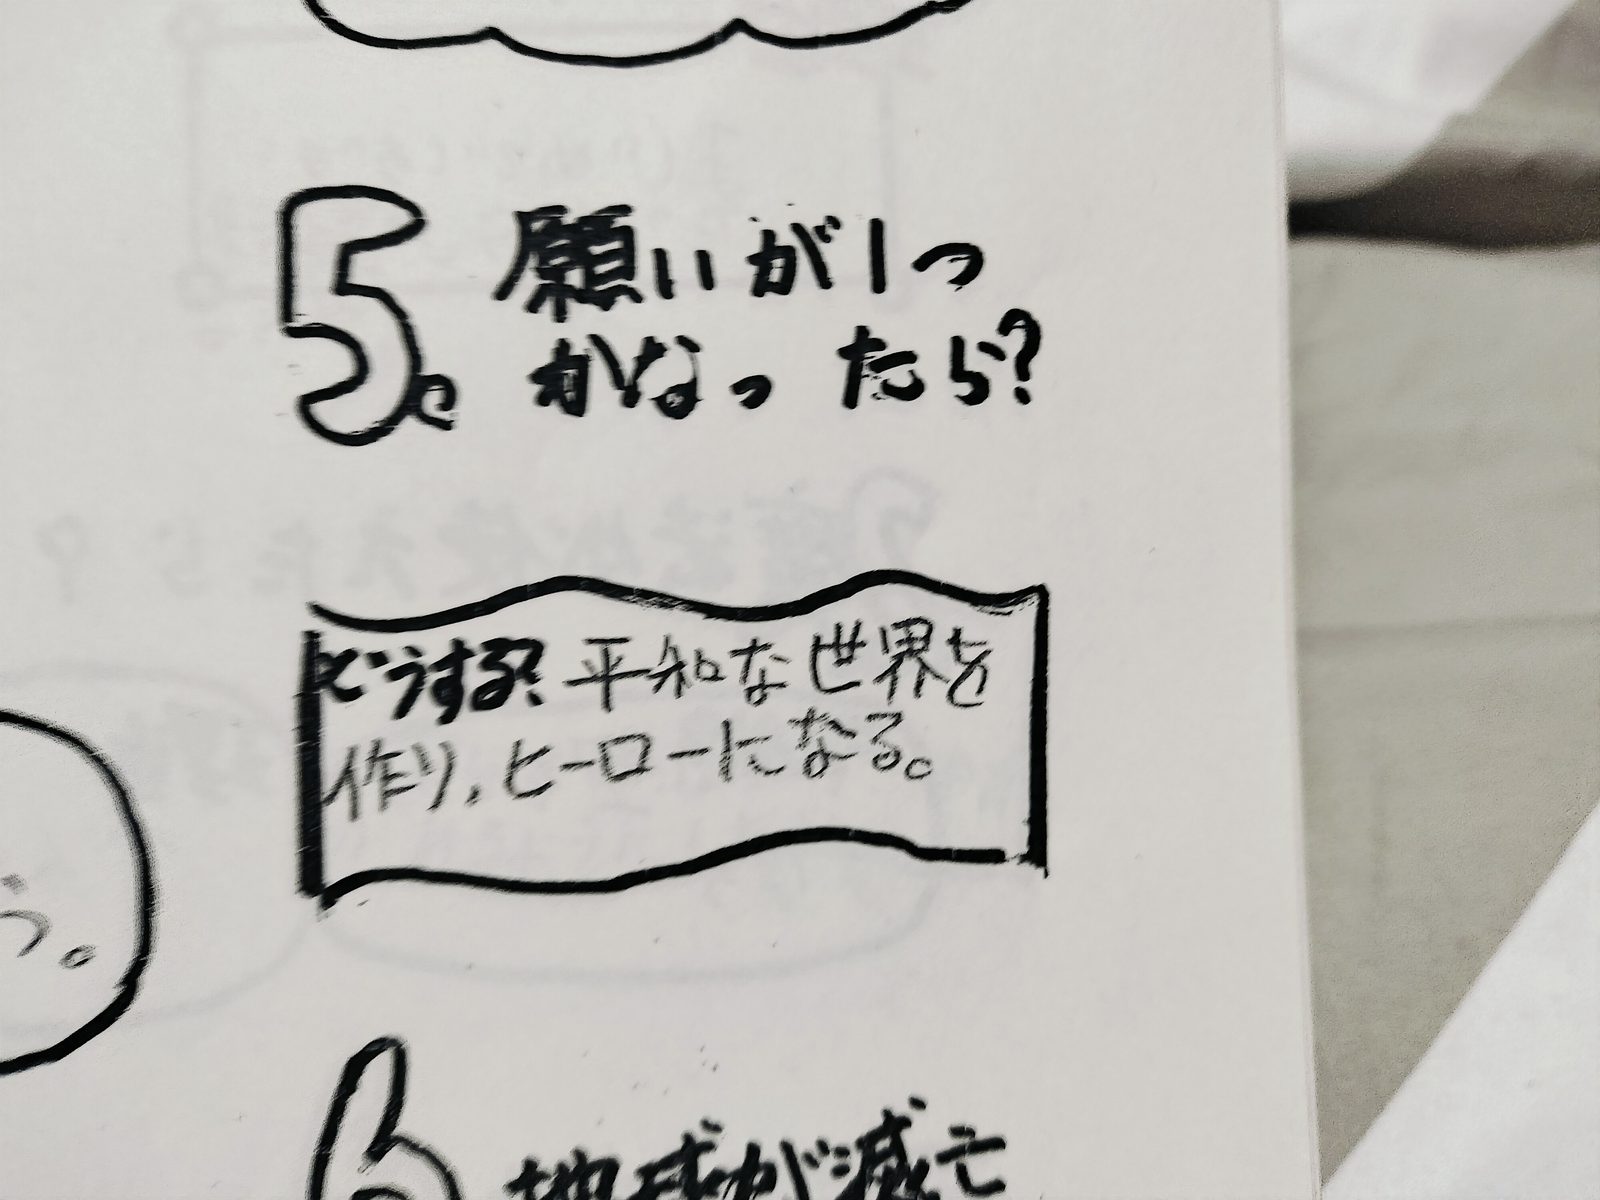 5。
願いが1つ
かなったら?
どうする? 平和な世界を
作り、ヒーローになる。
う。
6
地球が滅亡